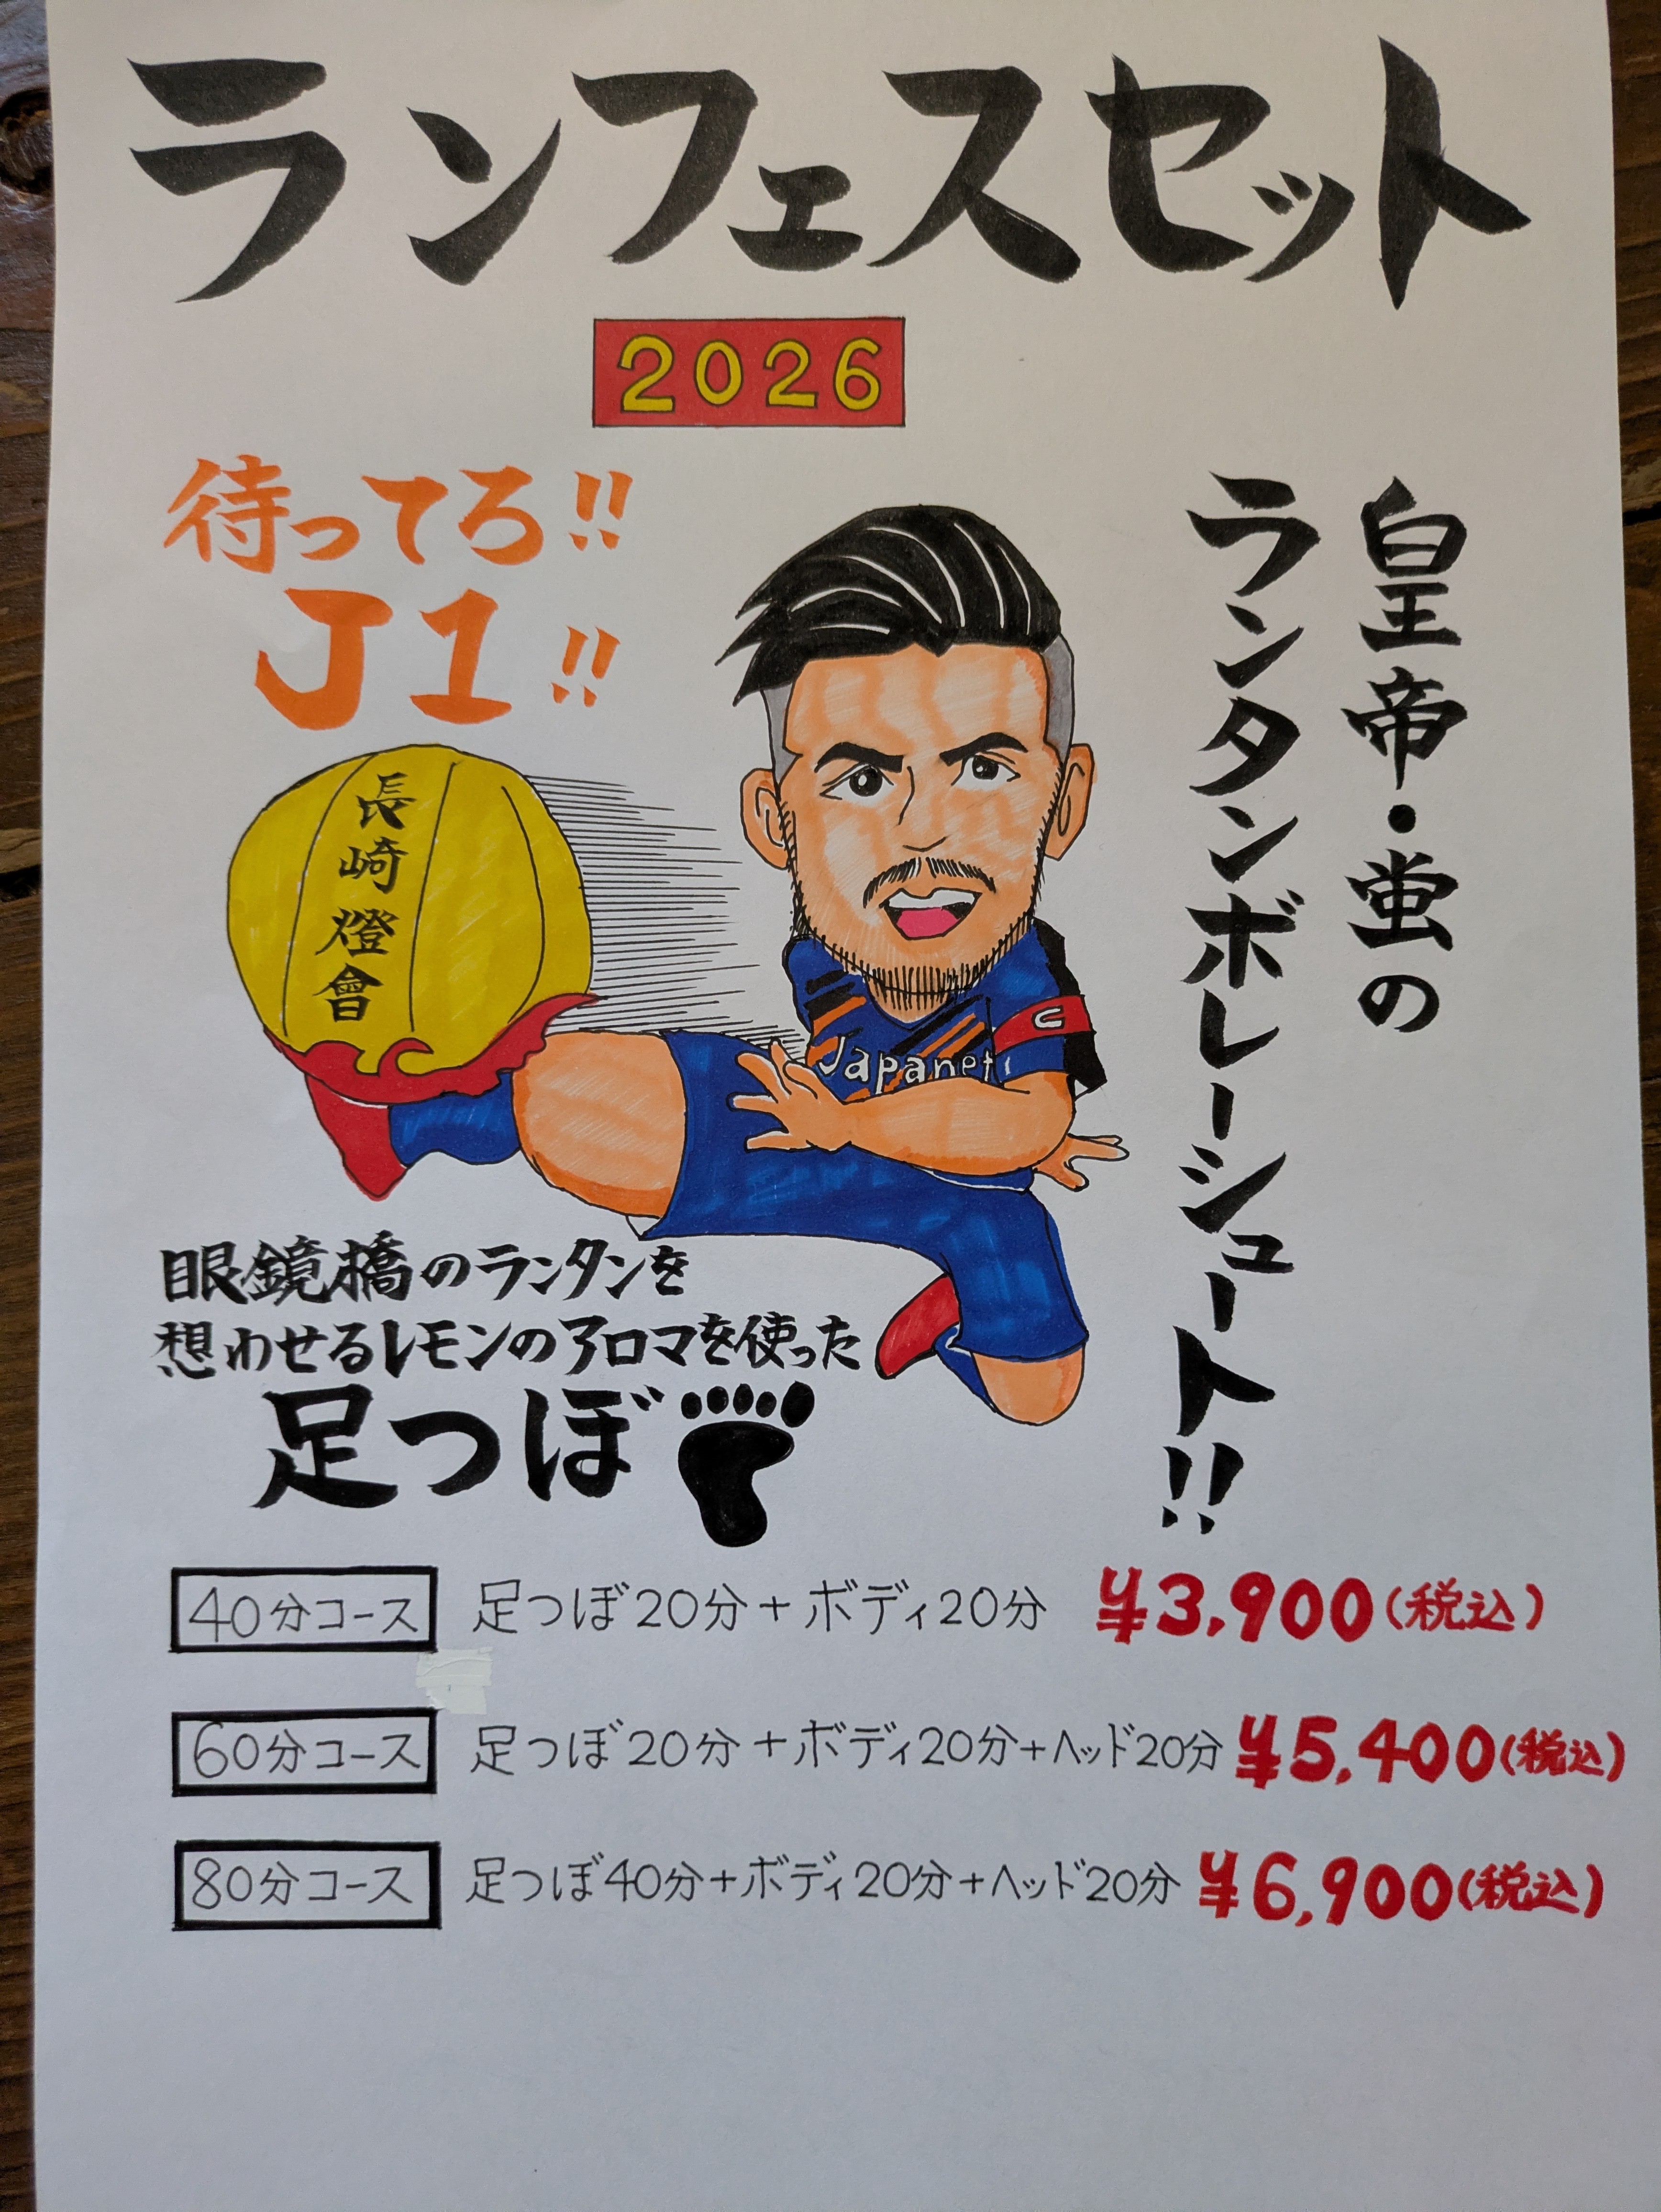 ランフェスセット
2026
待ってろ!!
J1!!
皇帝・蛍の
ランタンボレーシュート!!
長崎燈會
C
Japanet
眼鏡橋のランタンを
想わせるレモンのアロマを使った
足つぼ
40分コース 足つぼ20分+ボディ20分 ¥3,900(税込)
60分コース 足つぼ20分+ボディ20分+ヘッド20分 ¥5,400(税込)
80分コース 足つぼ40分+ボディ20分+ヘッド20分 ¥6,900(税込)